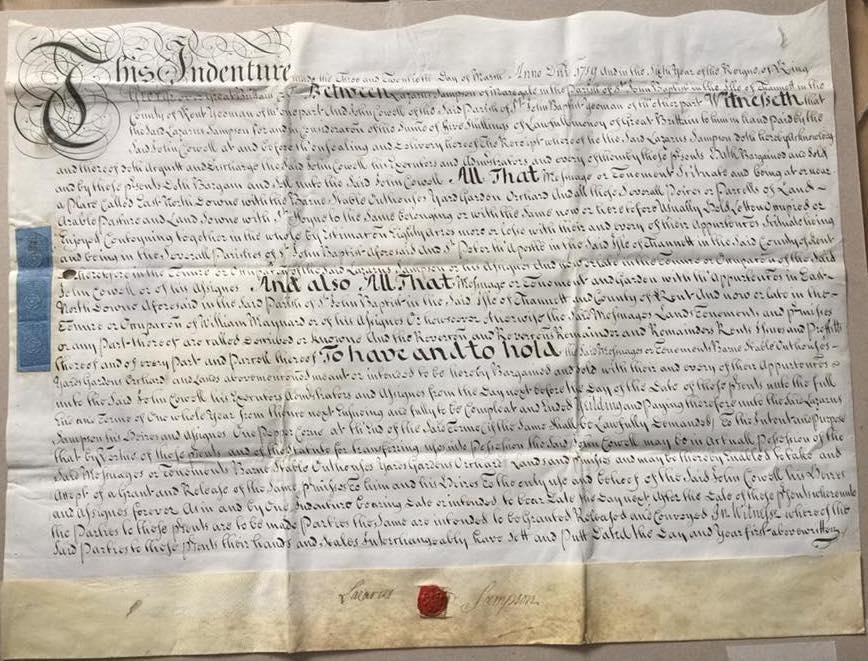 This Indenture made the Three and Twentieth Day of March Anno Dni 1719 And in the Sixth Year of the Reigne of King
George over Great Brittain &c Between Lazarus Sampson of Margate in the Parish of St John Baptist in the Isle of Thannett in the
County of Kent Yeoman of th'one part And John Cowell of the said Parish of St John Baptist Yeoman of th'other part Witnesseth that
the said Lazarus Sampson for and in consideration of the Sume of five Shillings of Lawfull money of Great Brittain to him in hand paid by the
said John Cowell at and before th'ensealing and delivery hereof The Receipt whereof he the said Lazarus Sampson doth hereby Acknowledg
and thereof doth Acquitt and discharge the said John Cowell his Executors and Administrators and every of them by these Prsents Hath Bargained and Sold
and by these Prsents doth Bargain and Sell unto the said John Cowell All That Messuage or Tenement Scituate and being at or near
a Place Called East North Downe with the Barne Stable Outhouses Yard Garden Orchard And all those Severall Peices or Parcells of Land
Arable Pasture and Land Sowne with St Foyne to the Same belonging or with the Same now or heretofore Usually Held Letten Occupied or
Enjoyed Conteyning together in the whole by Estimation Eighty Acres more or lesse with their and every of their Appurtences Scituate lying
and being in the Severall Parishes of St John Baptist Aforesaid and St Peter th'Apostle in the said Isle of Thannett in the said County of Kent
heretofore in the Tenure or Occupacon of the said Lazarus Sampson or his Assignes And now or late in the Tenure or Occupacon of the said
John Cowell or of his Assignes And also All That Messuage or Tenement and Garden with th'Appurtences in East
North Downe Aforesaid in the said Parish of St John Baptist in the said Isle of Thannett and County of Kent And now or late in the
Tenure or Occupacon of William Maynard or of his Assignes Or howsoever otherwise the said Messuages Lands Tenements and Prmisses
or any Part thereof are called Described or knowne And the Revercon and Revercons Remainder and Remainders Rents Issues and Proffitts
thereof and of every Part and Parcell thereof To have and to hold the said Messuages or Tenements Barne Stable Outhouses
Yards Gardens Orchard and Lands abovementioned meant or intended to be hereby Bargained and Sold with their and every of their Appurtences
unto the said John Cowell his Executors Administrators and Assignes from the Day next before the Day of the Date of these Prsents unto the full
End and Terme of One whole Year from thence next Ensueing and fully to be Compleat and Ended Yeilding and Paying therefore unto the said Lazarus
Sampson his Heires and Assignes One Pepper Corne at th'End of the said Terme (if the same Shall be Lawfully Demanded) To the Intent and Purpose
that by Vertue of these Prsents and of the Statute for transferring uses into Possession the said John Cowell may be in Actuall Possession of the
said Messuages or Tenements Barne Stable Outhouses Yards Gardens Orchard Lands and Prmisses and may be thereby Enabled to take and
Accept of a Grant and Release of the Same Prmisses To him and his Heires To the only use and behoof of the said John Cowell his Heires
and Assignes forever As in and by One Indenture bearing Date or intended to bear Date the Day next After the Date of these Prsents whereunto
the Parties to these Prsents are to be made Parties the Same are intended to be Granted Released and Conveyed In Witnesse whereof the
said Parties to these Prsents their hands and Seales Interchangeably have sett and Putt Dated the Day and Year first abovewritten
Lazarus Sampson